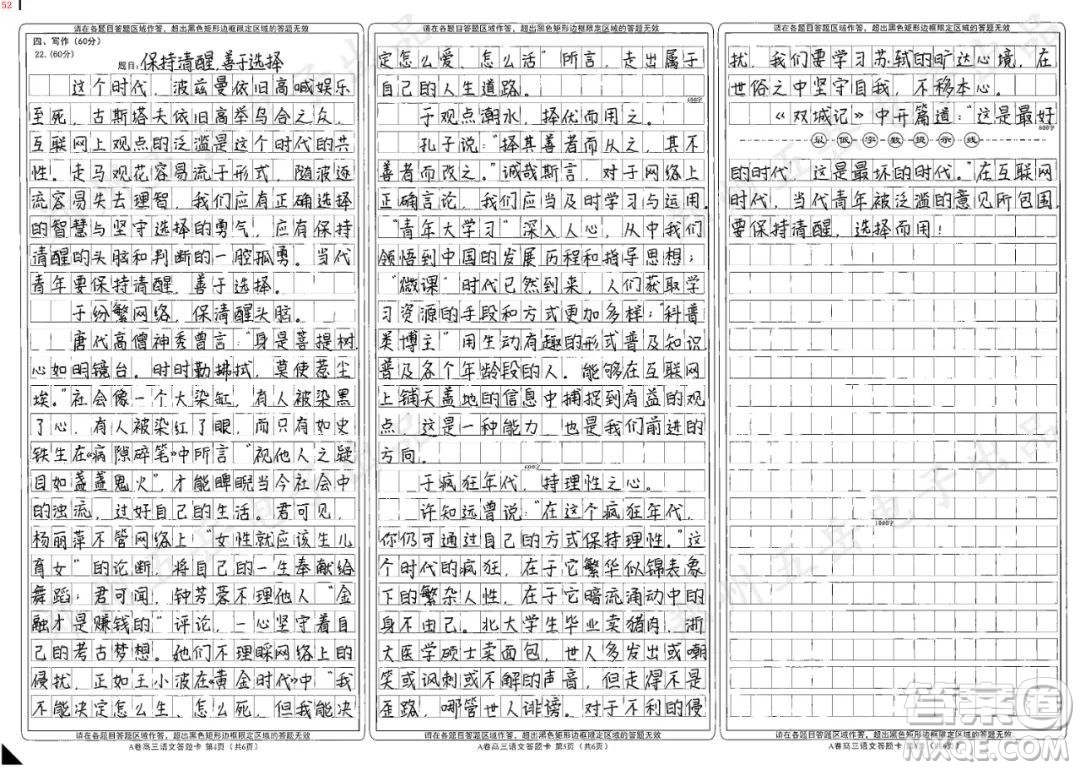 52
请在各题目答题区域作答，超出黑色矩形边框限定区域的答题无效
四、写作（60分）
22.（60分）
题目：保持清醒，善于选择
这个时代，波兹曼依旧高喊娱乐
至死，古斯塔夫依旧高举乌合之众，
互联网上观点的泛滥是这个时代的共
性。走马观花容易流于形式，随波逐
流容易失去理智，我们应有正确选择
的智慧与坚守选择的勇气，应有保持
清醒的头脑和判断的一腔孤勇。当代
青年要保持清醒，善于选择。
于纷繁网络，保清醒头脑。
唐代高僧神秀曾言：“身是菩提树，
心如明镜台。时时勤拂拭，莫使惹尘
埃。”社会像一个大染缸，有人被染黑
了心，有人被染红了眼，而只有如史
铁生在《病隙碎笔》中所言“视他人之疑
目如盏盏鬼火”，才能睥睨当今社会中
的浊流，过好自己的生活。君可见，
杨丽萍不管网络上“女性就应该生儿
育女”的论断，将自己的一生奉献给
舞蹈；君可闻，钟芳蓉不理他人“金
融才是赚钱的”评论，一心坚守着自
己的考古梦想。她们不理睬网络上的
侵扰，正如王小波在《黄金时代》中“我
不能决定怎么生、怎么死，但我能决
请在各题目答题区域作答，超出黑色矩形边框限定区域的答题无效
A卷高三语文答题卡 第4页（共6页）
请在各题目答题区域作答，超出黑色矩形边框限定区域的答题无效
定怎么爱、怎么活”所言，走出属于
自己的人生道路。
于观点潮水，择优而用之。
孔子说：“择其善者而从之，其不
善者而改之。”诚哉斯言，对于网络上
正确言论，我们应当及时学习与运用。
“青年大学习”深入人心，从中我们
领悟到中国的发展历程和指导思想；
“微课”时代已然到来，人们获取学
习资源的手段和方式更加多样；“科普
类博主”用生动有趣的形式普及知识
普及各个年龄段的人。能够在互联网
上铺天盖地的信息中捕捉到有益的观
点，这是一种能力，也是我们前进的
方向。
600字
于疯狂年代，持理性之心。
许知远曾说：“在这个疯狂年代，
你仍可通过自己的方式保持理性。”这
个时代的疯狂，在于它繁华似锦表象
下的繁杂人性，在于它暗流涌动中的
身不由己。北大学生毕业卖猪肉，浙
大医学硕士卖面包，世人多发出或嘲
笑或讽刺或不解的声音，但走得不是
歪路，哪管世人诽谤。对于不利的侵
请在各题目答题区域作答，超出黑色矩形边框限定区域的答题无效
A卷高三语文答题卡 第5页（共6页）
请在各题目答题区域作答，超出黑色矩形边框限定区域的答题无效
扰，我们要学习苏轼的旷达心境，在
世俗之中坚守自我，不移本心。
《双城记》中开篇道：“这是最好
800字
最低字数提示线
的时代，这是最坏的时代。”在互联网
时代，当代青年被泛滥的意见所包围，
要保持清醒，选择而用！
1000字
请在各题目答题区域作答，超出黑色矩形边框限定区域的答题无效
A卷高三语文答题卡
答案圈